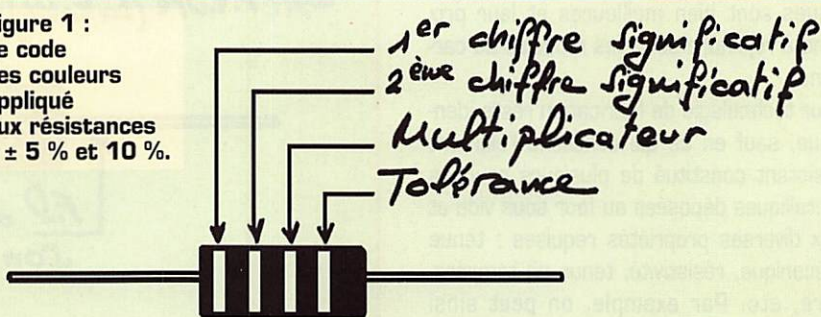 igure 1 :
e code
es couleurs
ppliqué
ux résistances
± 5 % et 10 %.
1er chiffre significatif
2ème chiffre significatif
Multiplicateur
Tolérance